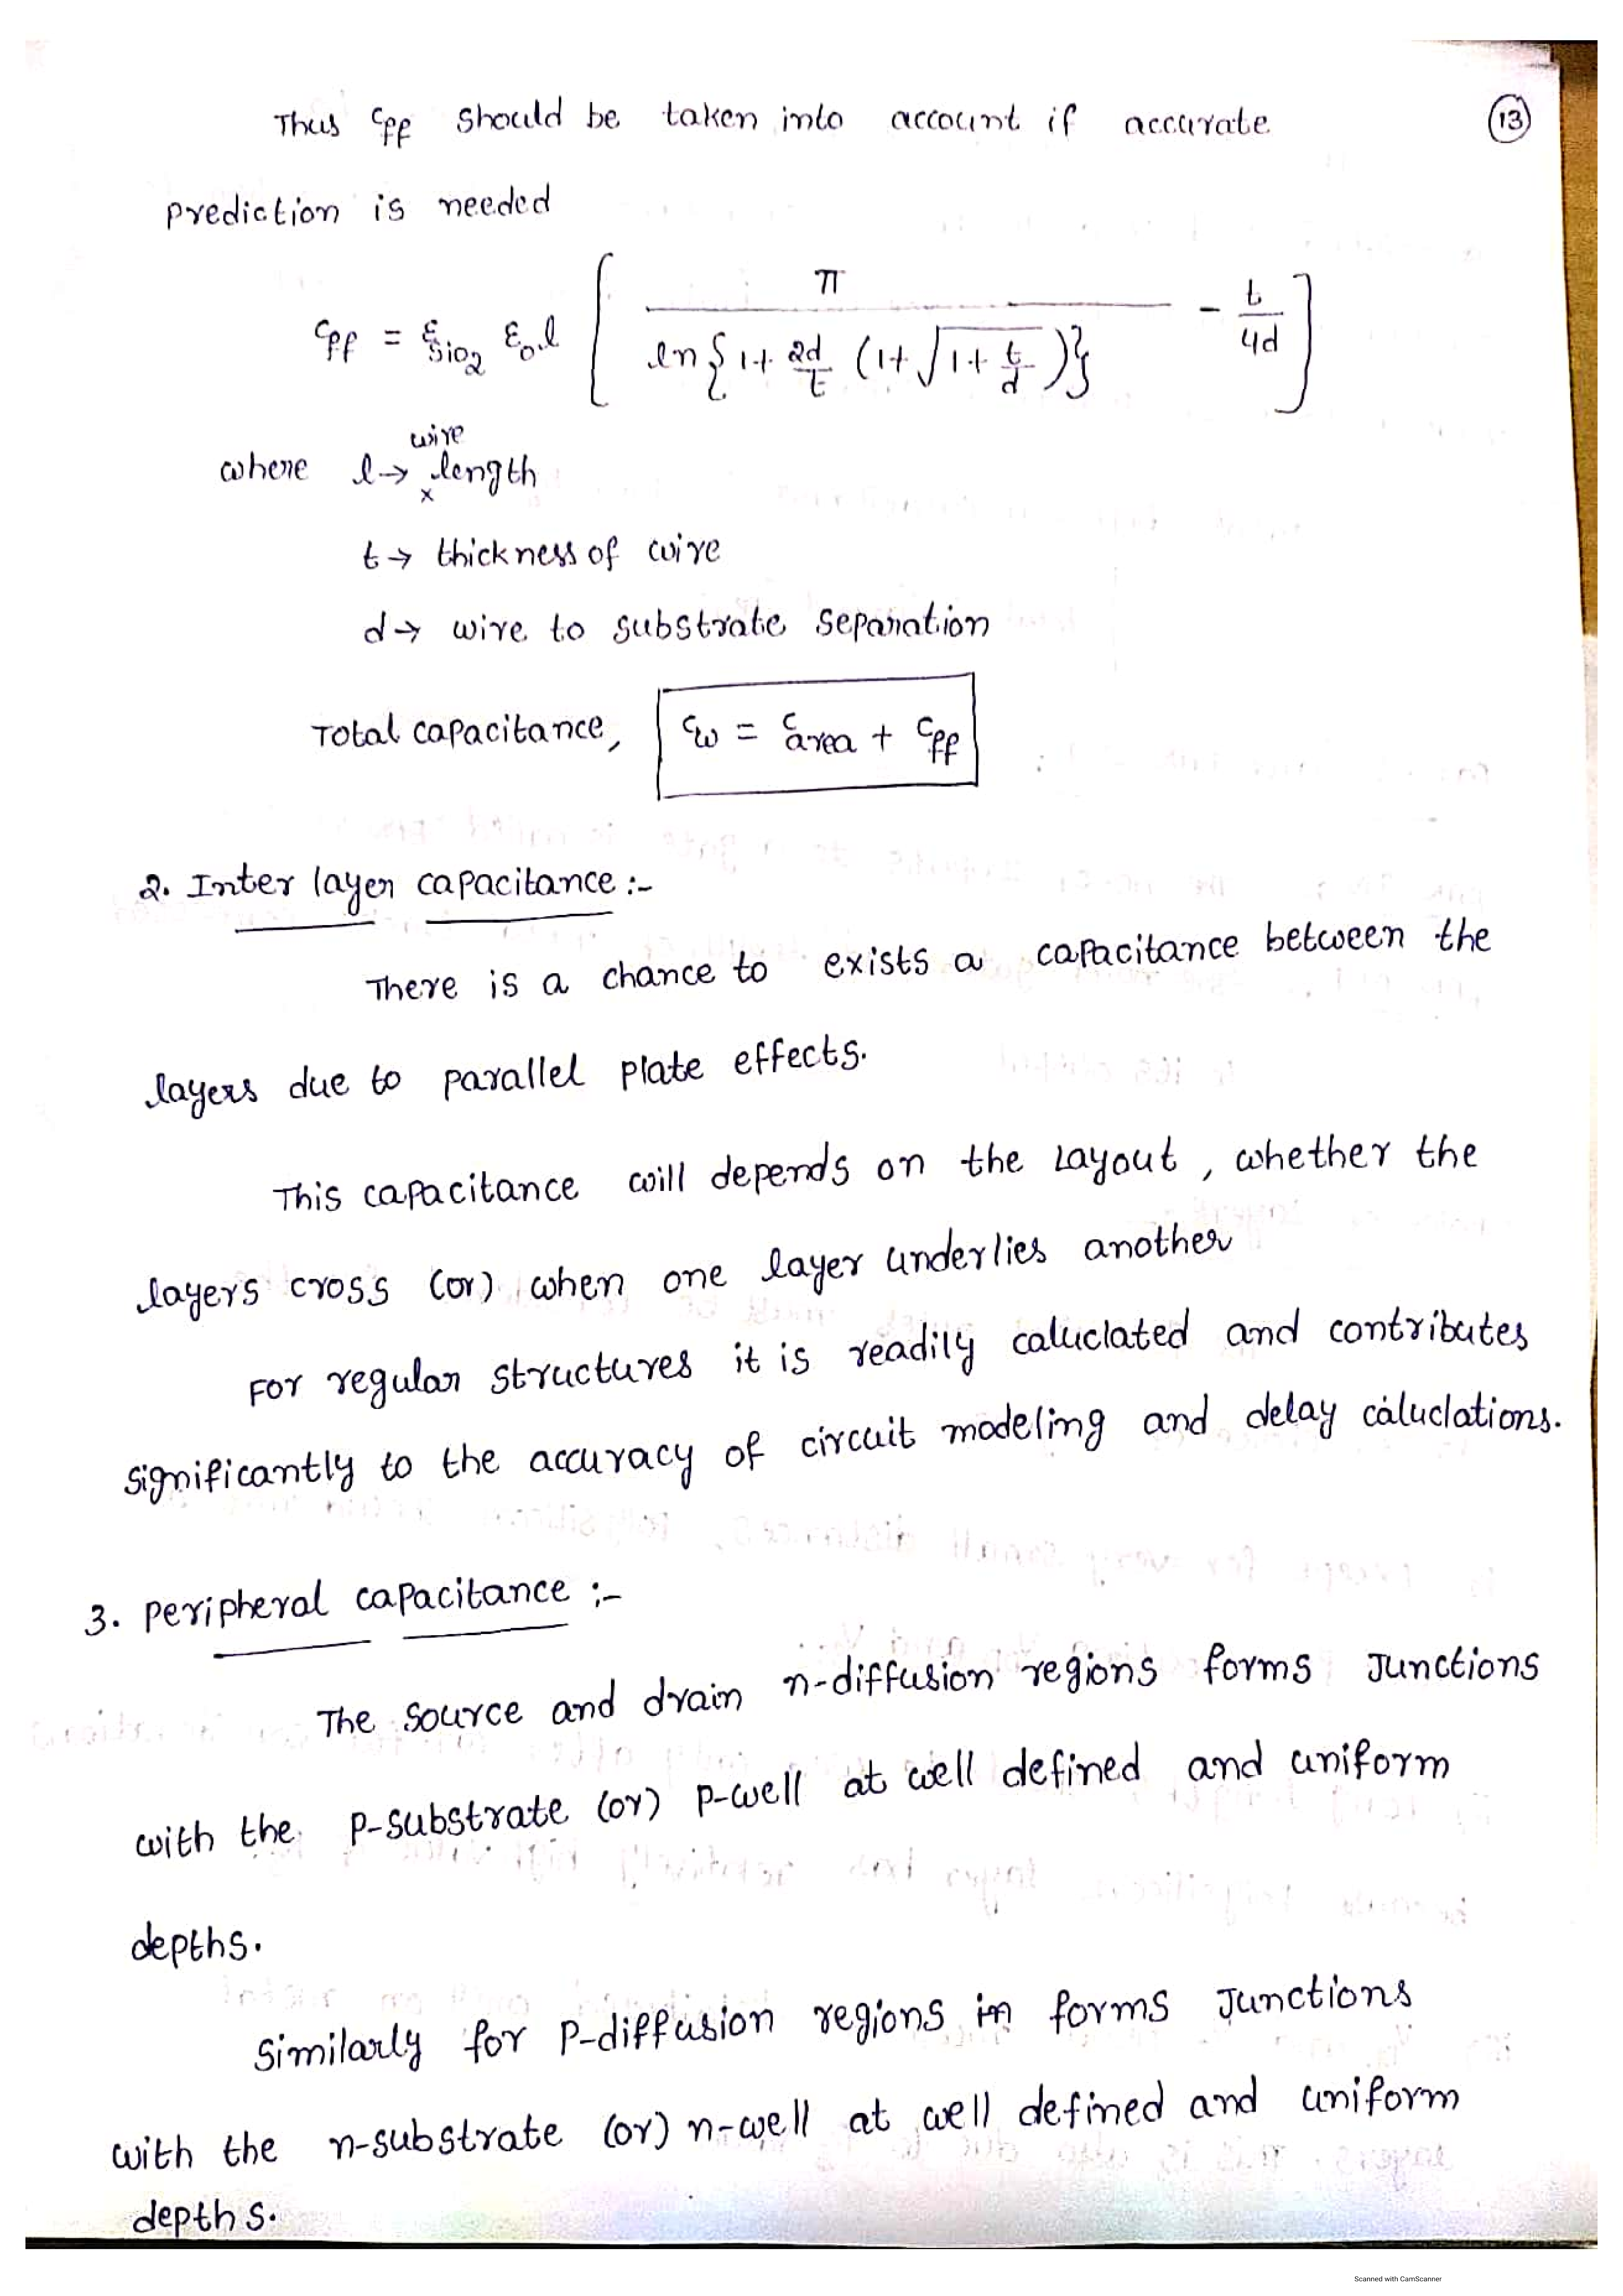 Thus Cff should be taken into account if accurate
(13)
prediction is needed
Cff = εSiO2 ε0.l [ π / ln{1+ 2d/t (1+√(1+ t/d))} - t/4d ]
where l→ wire length
t→ thickness of wire
d→ wire to substrate separation
Total capacitance, Cw = Carea + Cff
2. Inter layer capacitance :-
There is a chance to exists a capacitance between the
layers due to parallel plate effects.
This capacitance will depends on the Layout, whether the
layers cross (or) when one layer underlies another
For regular structures it is readily caluclated and contributes
significantly to the accuracy of circuit modeling and delay caluclations.
3. Peripheral capacitance :-
The source and drain n-diffusion regions forms Junctions
with the p-substrate (or) p-well at well defined and uniform
depths.
Similarly for p-diffusion regions in forms Junctions
with the n-substrate (or) n-well at well defined and uniform
depths.
Scanned with CamScanner